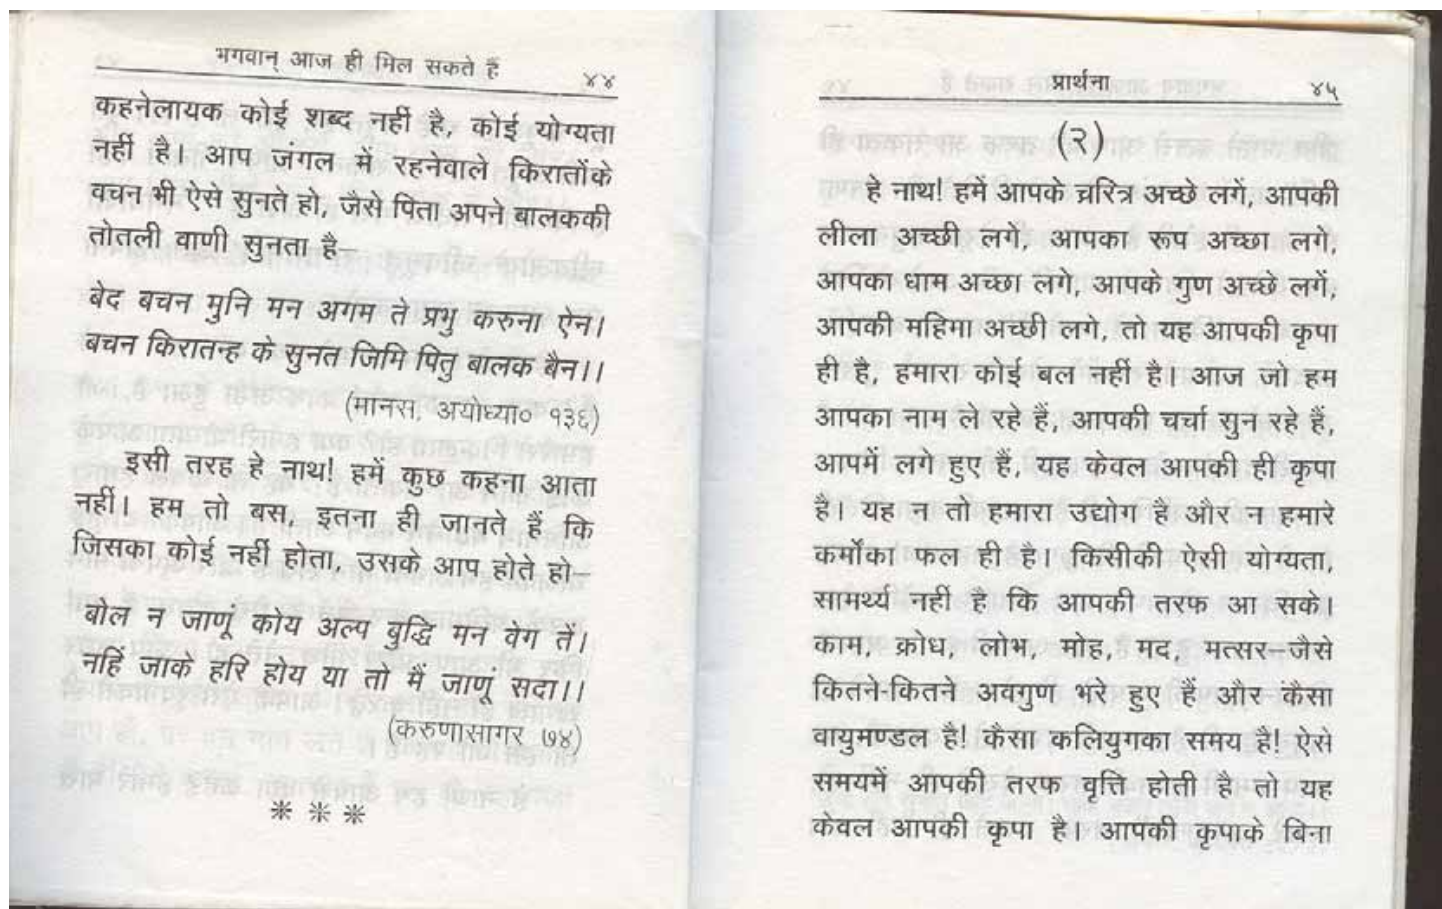 भगवान् आज ही मिल सकते हैं ४४
कहनेलायक कोई शब्द नहीं है, कोई योग्यता
नहीं है। आप जंगल में रहनेवाले किरातोंके
वचन भी ऐसे सुनते हो, जैसे पिता अपने बालककी
तोतली वाणी सुनता है–
बेद बचन मुनि मन अगम ते प्रभु करुना ऐन।
बचन किरातन्ह के सुनत जिमि पितु बालक बैन।।
(मानस, अयोध्या० १३६)
इसी तरह हे नाथ! हमें कुछ कहना आता
नहीं। हम तो बस, इतना ही जानते हैं कि
जिसका कोई नहीं होता, उसके आप होते हो–
बोल न जाणूं कोय अल्प बुद्धि मन वेग तें।
नहिं जाके हरि होय या तो मैं जाणू सदा।।
(करुणासागर ७४)
***
प्रार्थना ४५
(२)
हे नाथ! हमें आपके चरित्र अच्छे लगें, आपकी
लीला अच्छी लगें, आपका रूप अच्छा लगें,
आपका धाम अच्छा लगे, आपके गुण अच्छे लगें,
आपकी महिमा अच्छी लगे, तो यह आपकी कृपा
ही है, हमारा कोई बल नहीं है। आज जो हम
आपका नाम ले रहे हैं, आपकी चर्चा सुन रहे हैं,
आपमें लगे हुए हैं, यह केवल आपकी ही कृपा
है। यह न तो हमारा उद्योग है और न हमारे
कर्मोंका फल ही है। किसीकी ऐसी योग्यता,
सामर्थ्य नहीं है कि आपकी तरफ आ सके।
काम, क्रोध, लोभ, मोह, मद, मत्सर–जैसे
कितने-कितने अवगुण भरे हुए हैं और कैसा
वायुमण्डल है! कैसा कलियुगका समय है! ऐसे
समयमें आपकी तरफ वृत्ति होती है तो यह
केवल आपकी कृपा है। आपकी कृपाके बिना